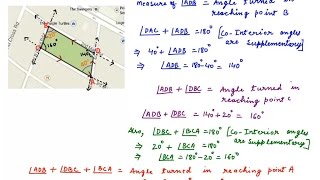 The Purple Turtles
The Swingers
160°
measure of ∠ADB = Angle turned in
reaching point B
∠DAC + ∠ADB = 180° [Co-Interior angles
are Supplementary]
⇒ 40° + ∠ADB = 180°
⇒ ∠ADB = 180°-40° = 140°
∠ADB + ∠DBC = Angle turned in
reaching point C
∠ADB + ∠DBC = 140° + 20° = 160°
Also, ∠DBC + ∠BCA = 180° [Co-Interior angles
are Supplementary]
⇒ 20° + ∠BCA = 180°
⇒ ∠BCA = 180°-20° = 160°
∠ADB + ∠DBC + ∠BCA = Angle turned in
reaching point A